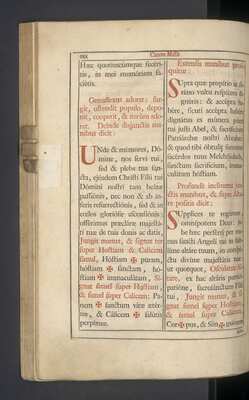 Canon Missæ
Hæc quotiescúmque fecéri-
tis, in mei memóriam fa-
ciétis.
Genuflexus adorat: sur-
git, ostendit populo, depo-
nit, cooperit, & iterum ado-
rat. Deinde disjunctis ma-
nibus dicit:
UNde & mémores, Dó-
mine, nos servi tui,
sed & plebs tua san-
cta, ejúsdem Christi Fílii tui
Dómini nostri tam beátæ
passiónis, nec non & ab ín-
feris resurrectiónis, sed & in
cælos gloriósæ ascensiónis:
offérimus præcláræ majestá-
ti tuæ de tuis donis ac datis,
Jungit manus, & signat ter
super Hostiam & Calicem
simul, Hóstiam ✠ puram,
hóstiam ✠ sanctam, hó-
stiam ✠ immaculátam, Si-
gnat semel super Hostiam,
& semel super Calicem: Pa-
nem ✠ sanctum vitæ ætér-
næ, & Cálicem ✠ salútis
perpétuæ.
Extensis manibus prose-
quitur:
SUpra quæ propítio ac se-
réno vultu
& accépta ha-
bére, sícuti accépta habére
dignátus es múnera púeri
tui justi Abel, & sacrifícium
Patriárchæ nostri Abrahæ:
& quod tibi óbtulit summus
sacérdos tuus Melchísedech,
sanctum sacrifícium, imma-
culátam hóstiam.
Profunde inclinatus jun-
ctis manibus, & super Alta-
re positis dicit:
SUpplices te rogámus,
omnípotens Deus: ju-
be hæc perférri per ma-
nus sancti Angeli tui in su-
blíme altáre tuum, in conspé-
ctu divínæ majestátis tuæ:
ut quotquot, Osculatur Al-
tare, ex hac altáris partici-
patióne, sacrosánctum Fílii
tui, Jungit manus, & si-
gnat semel super Hostiam,
& semel super Calicem,
Cor✠pus, & Sán✠guinem